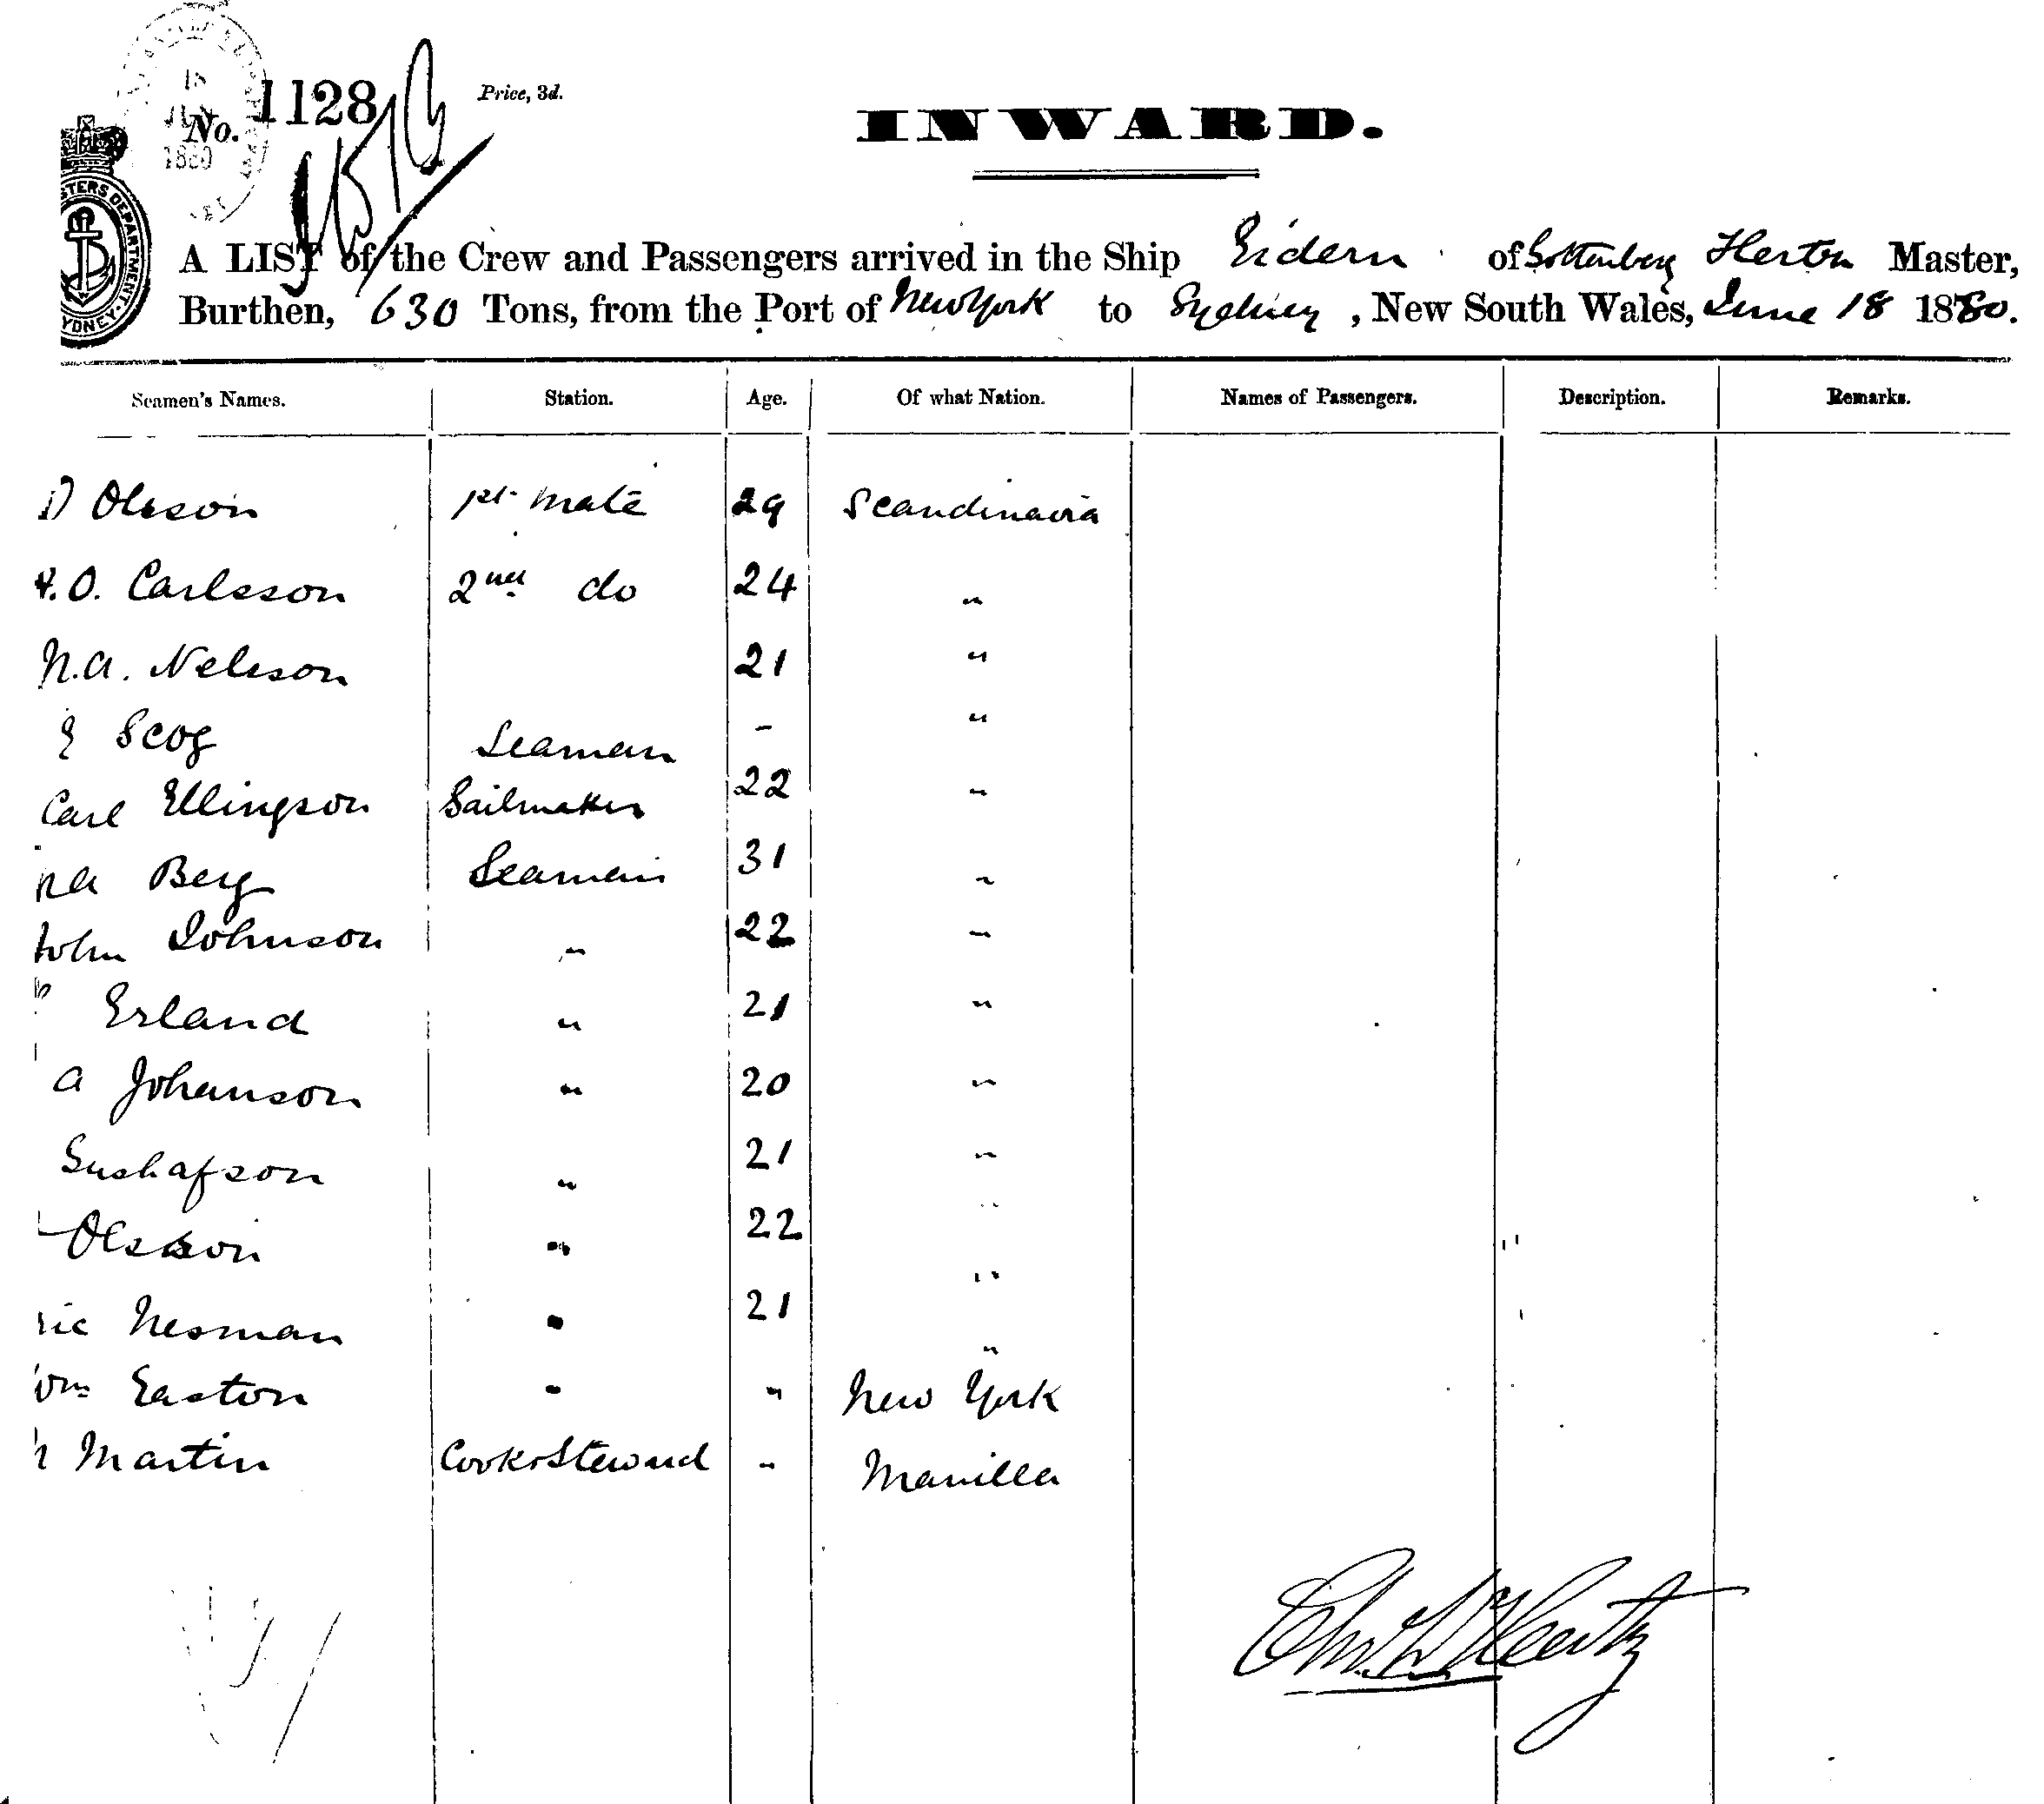 No. 1128 Price, 3d.
18
JUN
1880
INWARD.
A LIST of the Crew and Passengers arrived in the Ship Eidern of Gottenberg Herton Master,
Burthen, 630 Tons, from the Port of New York to Sydney, New South Wales, June 18 1880.
Seamen's Names. Station. Age. Of what Nation. Names of Passengers. Description. Remarks.
Olsson 1st mate 29 Scandinavia
O. Carlsson 2nd do 24 "
N.A. Nelsson 21 "
E Scog Seaman - "
Carl Ellingson Sailmaker 22 "
A Berg Seaman 31 "
John Johnson " 22 "
Erland " 21 "
A Johanson " 20 "
Gushafson " 21 "
Olsson " 22 "
ric Nesman " 21 "
Wm Easton " " New York
Martin Cook & Steward " Manilla